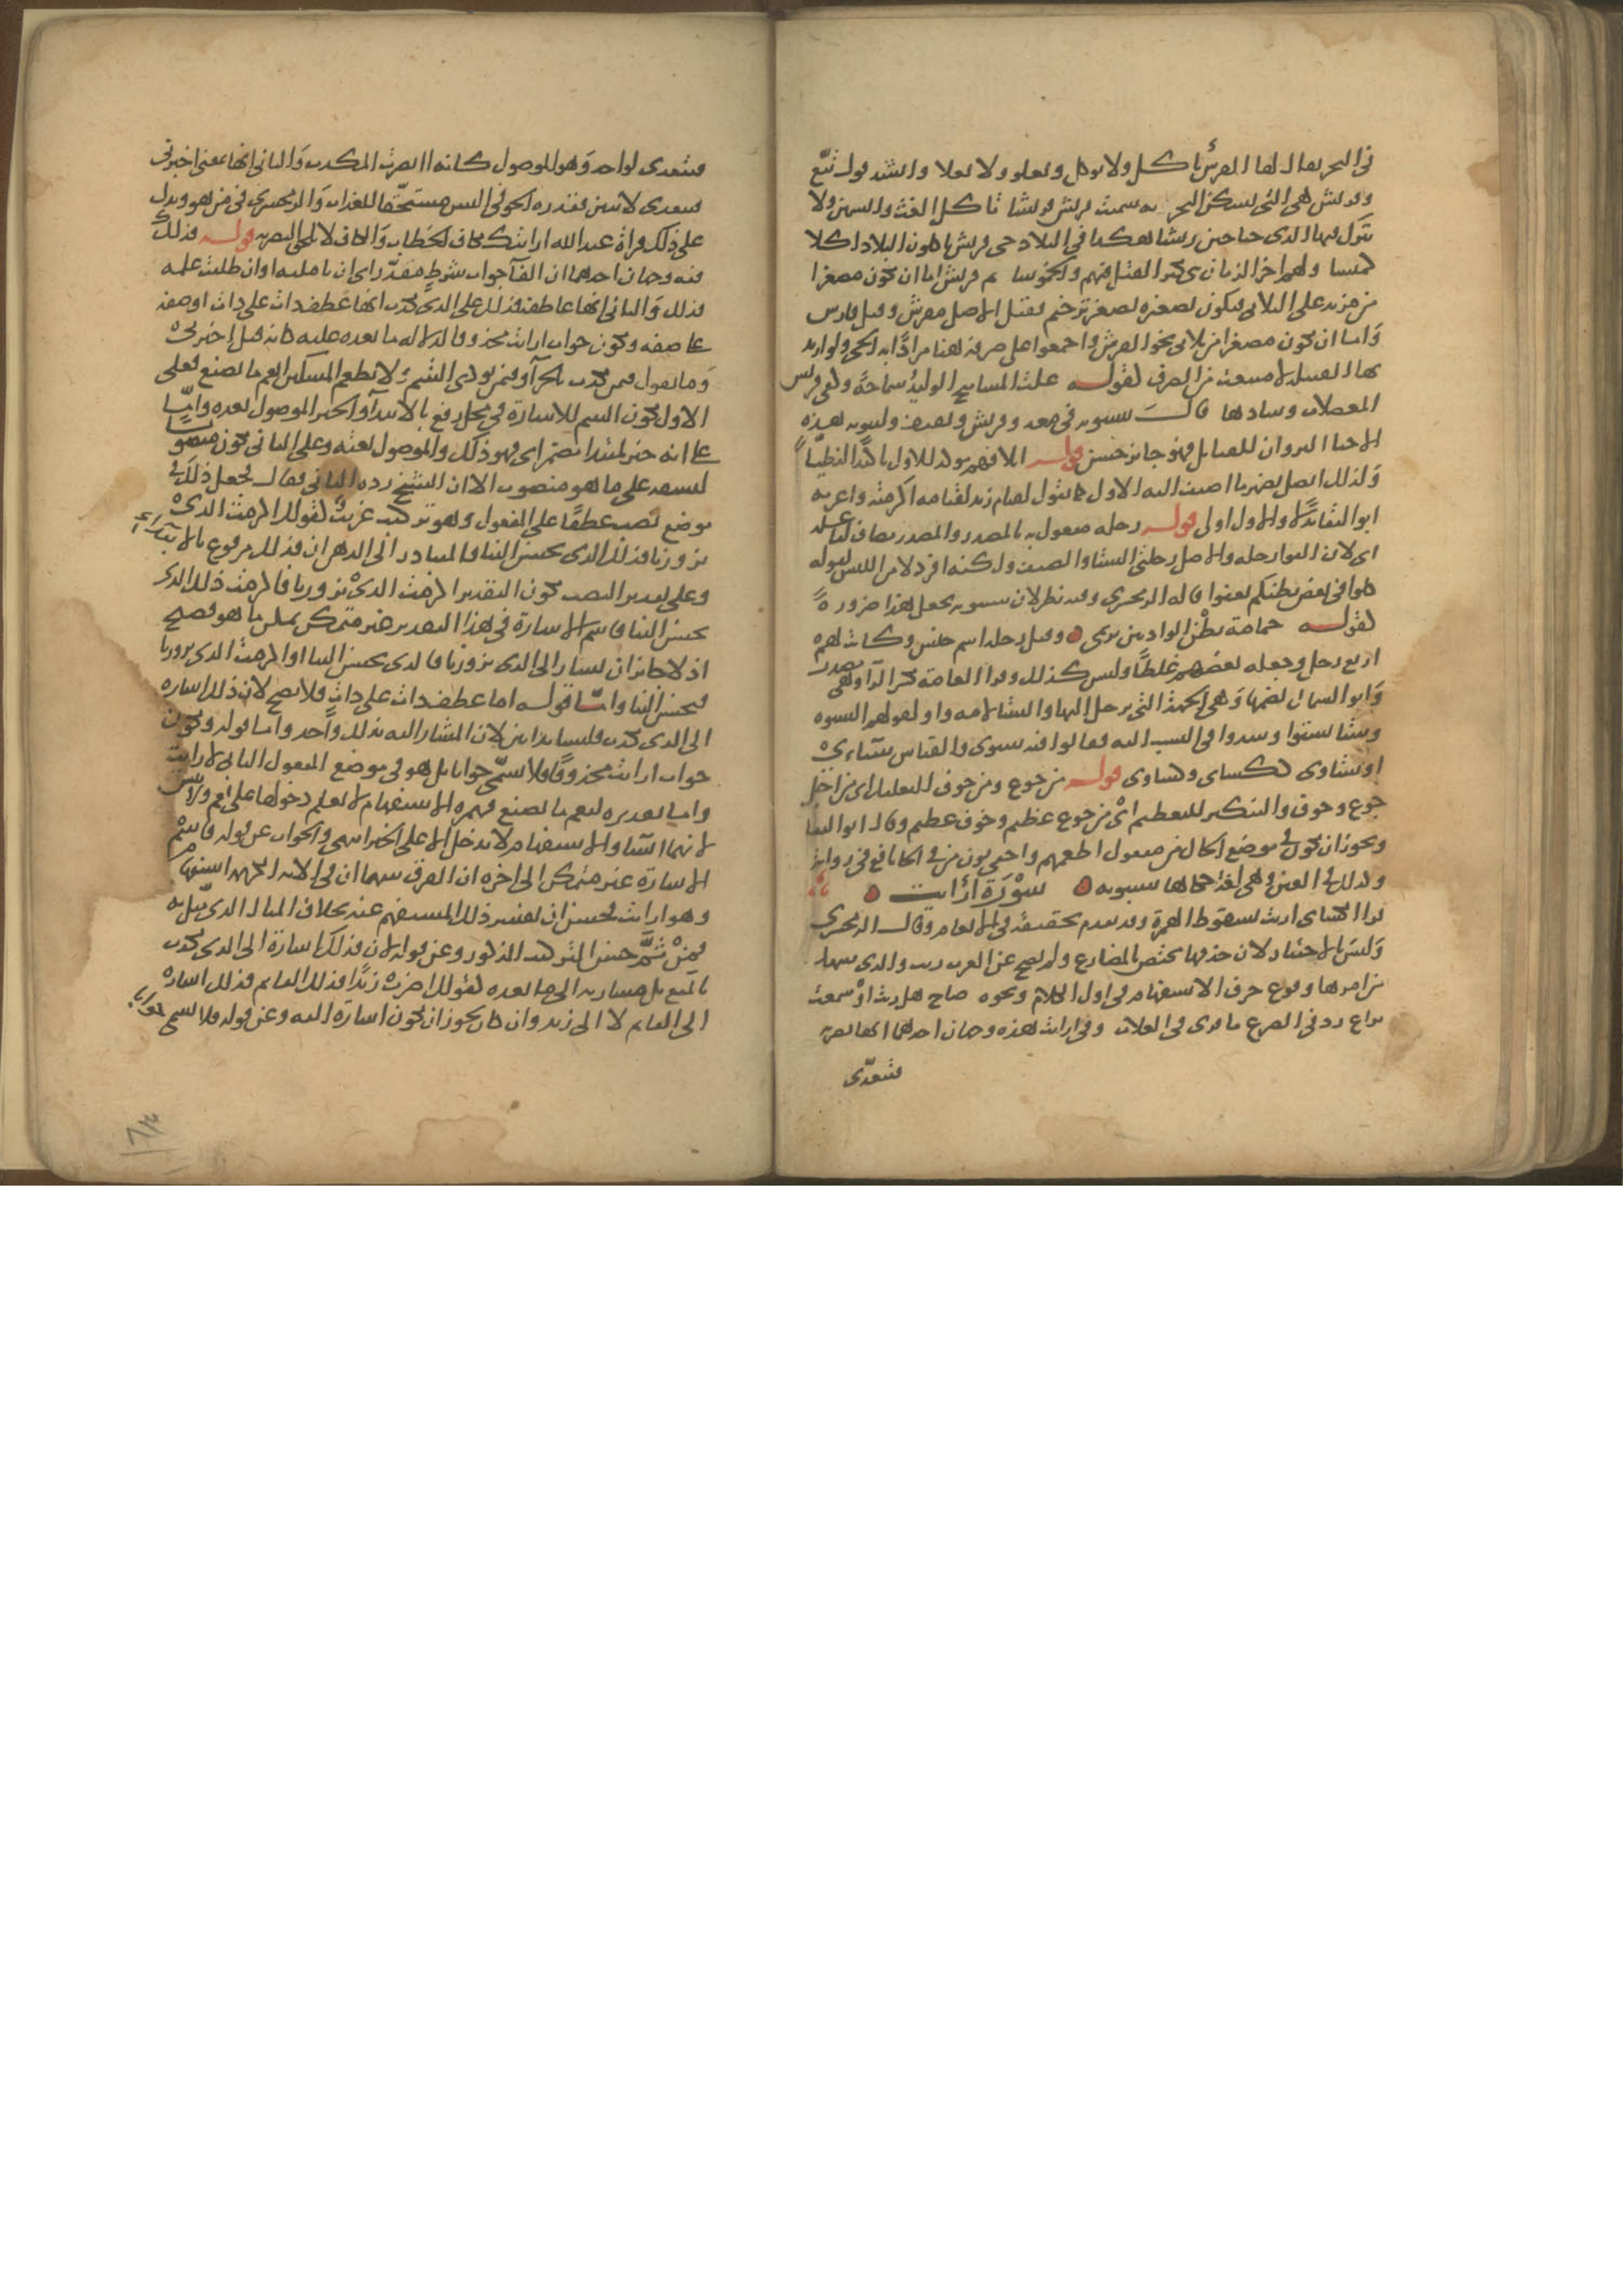 في البحر يقال لها القرش تاكل ولا توكل وتعلو ولا تعلا وانشد قول تبع
وقريش هي التي تسكن البحر به سميت قريش قريشا تاكل الغث والسمين ولا
تترك فيها لذي جناحين ريشا هكذا في البلاد حي قريش ياكلون البلاد اكلا
كميشا ولهم اخر الزمان نبي يكثر القتل فيهم والخموشا ثم قريش اما ان يكون مصغرا
من مزيد على الثلاثي فيكون تصغيره تصغير ترخيم فقيل الاصل مقرش وقيل قارش
واما ان يكون مصغرا من ثلاثي نحو القرش واجمعوا على صرفه هنا مرادا به الحي ولو اريد
بها القبيلة لامتنعت من الصرف لقوله غلب المساميح الوليد سماحة وكفى قريش
المعضلات وسادها قال سيبويه في معد وقريش وثقيف وكينونة هذه
الاحيا اكثر وان للقبايل فهو جايز حسن قوله ايلافهم موكد للاول تاكيدا لفظيا
ولذلك اتصل بضمير ما اضيف اليه الاول كما تقول لقيام زيد لقيامه اكرمته واعربه
ابو البقا بدلا والاول اولى قوله رحلة مفعول به بالمصدر والمصدر مضاف لفاعله
اي لان الفوا رحلة والاصل رحلتي الشتا والصيف ولكنه افرد لامن اللبس كقوله
كلوا في بعض بطنكم تعفوا قاله الزمخشري وفيه نظر لان سيبويه يجعل هذا ضرورة
لقوله حمامة بطن الواديين ترنمي وقيل رحلة اسم جنس وكانت لهم
اربع رحل وجعله بعضهم غلطا وليس كذلك وقرا العامة بكسر الرا وهي مصدر
وابو السمال بضمها وهي الجهة التي يرحل اليها والشتا لامه واو لقولهم الشتوة
وشتا يشتوا وشذوا في النسب اليه فقالوا فيه شتوي والقياس شتاءي
او شتاوي ككساي وكساوي قوله من جوع ومن خوف للتعليل اي من اجل
جوع وخوف والتنكير للتعظيم اي من جوع عظيم وخوف عظيم وقال ابو البقا
ويجوز ان يكون في موضع الحال من مفعول اطعمهم واخفى نون من في الخا نافع في رواية
وكذلك في العين وهي لغة حكاها سيبويه سورة ارايت
قرا الكساي اريت بسقوط الهمزة وقد تقدم تحقيقه في الانعام وقال الزمخشري
وليس بالاختيار لان حذفها يختص بالمضارع ولم يصح عن العرب ريت والذي سهل
من امرها وقوع حرف الاستفهام في اول الكلام ونحوه صاح هل ريت او سمعت
براع رد في الضرع ما قرى في العلاب وفي ارايت هذه وجهان احدهما انها بصرية
فتتعدى
فتتعدى لواحد وهو الموصول كانه اابصرت المكذب والثاني انها بمعنى اخبرني
فتتعدى لاثنين فقدره الحوفي اليس مستحقا للعذاب والزمخشري من هو ويدل
على ذلك قراة عبد الله ارايتك بكاف الخطاب والكاف لا تلحق البصرية قوله فذلك
فيه وجهان احدهما ان الفا جواب شرط مقدر اي ان تامله او ان طلبت علمه
فذلك والثاني انها عاطفة فذلك على الذي يكذب انها عطف ذات على ذات او صفة
على صفة ويكون جواب ارايت محذوفا لدلالة ما بعده عليه كانه قيل اخبرني
وما تقول فيمن يكذب بالجزا وفيمن يوذي اليتيم ولا يطعم المسكين انعم ما يصنع فعلى
الاول يكون اسم الاشارة في محل رفع بالابتدا والخبر الموصول بعده واما
على انه خبر لمبتدا مضمر اي فهو ذلك والموصول نعته وعلى الثاني يكون منصوبا
لنسقه على ما هو منصوب الا ان الشيخ رده الثاني فقال فجعل ذلك في
موضع نصب عطفا على المفعول وهو تركيب غريب كقولك اكرمت الذي
يزورنا فذلك الذي يحسن الينا فالمتبادر الى الذهن ان فذلك مرفوع بالابتداء
وعلى تقدير النصب يكون التقدير اكرمت الذي يزورنا فاكرمت ذلك الذي
يحسن الينا فاسم الاشارة في هذا التقدير غير متمكن تمكن ما هو فصيح
اذ لا حاجة ان يشار الى الذي يزورنا فالذي يحسن الينا او اكرمت الذي يزورنا
فيحسن الينا واما قوله اما عطف ذات على ذات فلا يصح لان ذلك اشارة
الى الذي يكذب فليسا بذاتين لان المشار اليه بذلك واحد واما قوله ويكون
جواب ارايت محذوفا فلا يسمى جوابا بل هو في موضع المفعول الثاني لارايت
واما تقديره انعم ما يصنع فهمزة الاستفهام لا نعلم دخولها على نعم ولا بيس
لانهما انشا والاستفهام لا يدخل الا على الخبر انتهى والجواب عن قوله فاسم
الاشارة غير متمكن الى اخره ان الفرق بينهما ان في الاية الكريمة استفهام
وهو ارايت فحسن ان يفسر ذلك المستفهم عنه بخلاف المثال الذي مثل به
فمن ثم حسن التركيب المذكور وعن قوله لان فذلك اشارة الى الذي يكذب
بالمنع بل مشار به الى ما بعده كقولك اضرب زيدا فذلك القايم فذلك اشارة
الى القايم لا الى زيد وان كان يجوز ان يكون اشارة اليه وعن قوله فلا يسمى جوابا